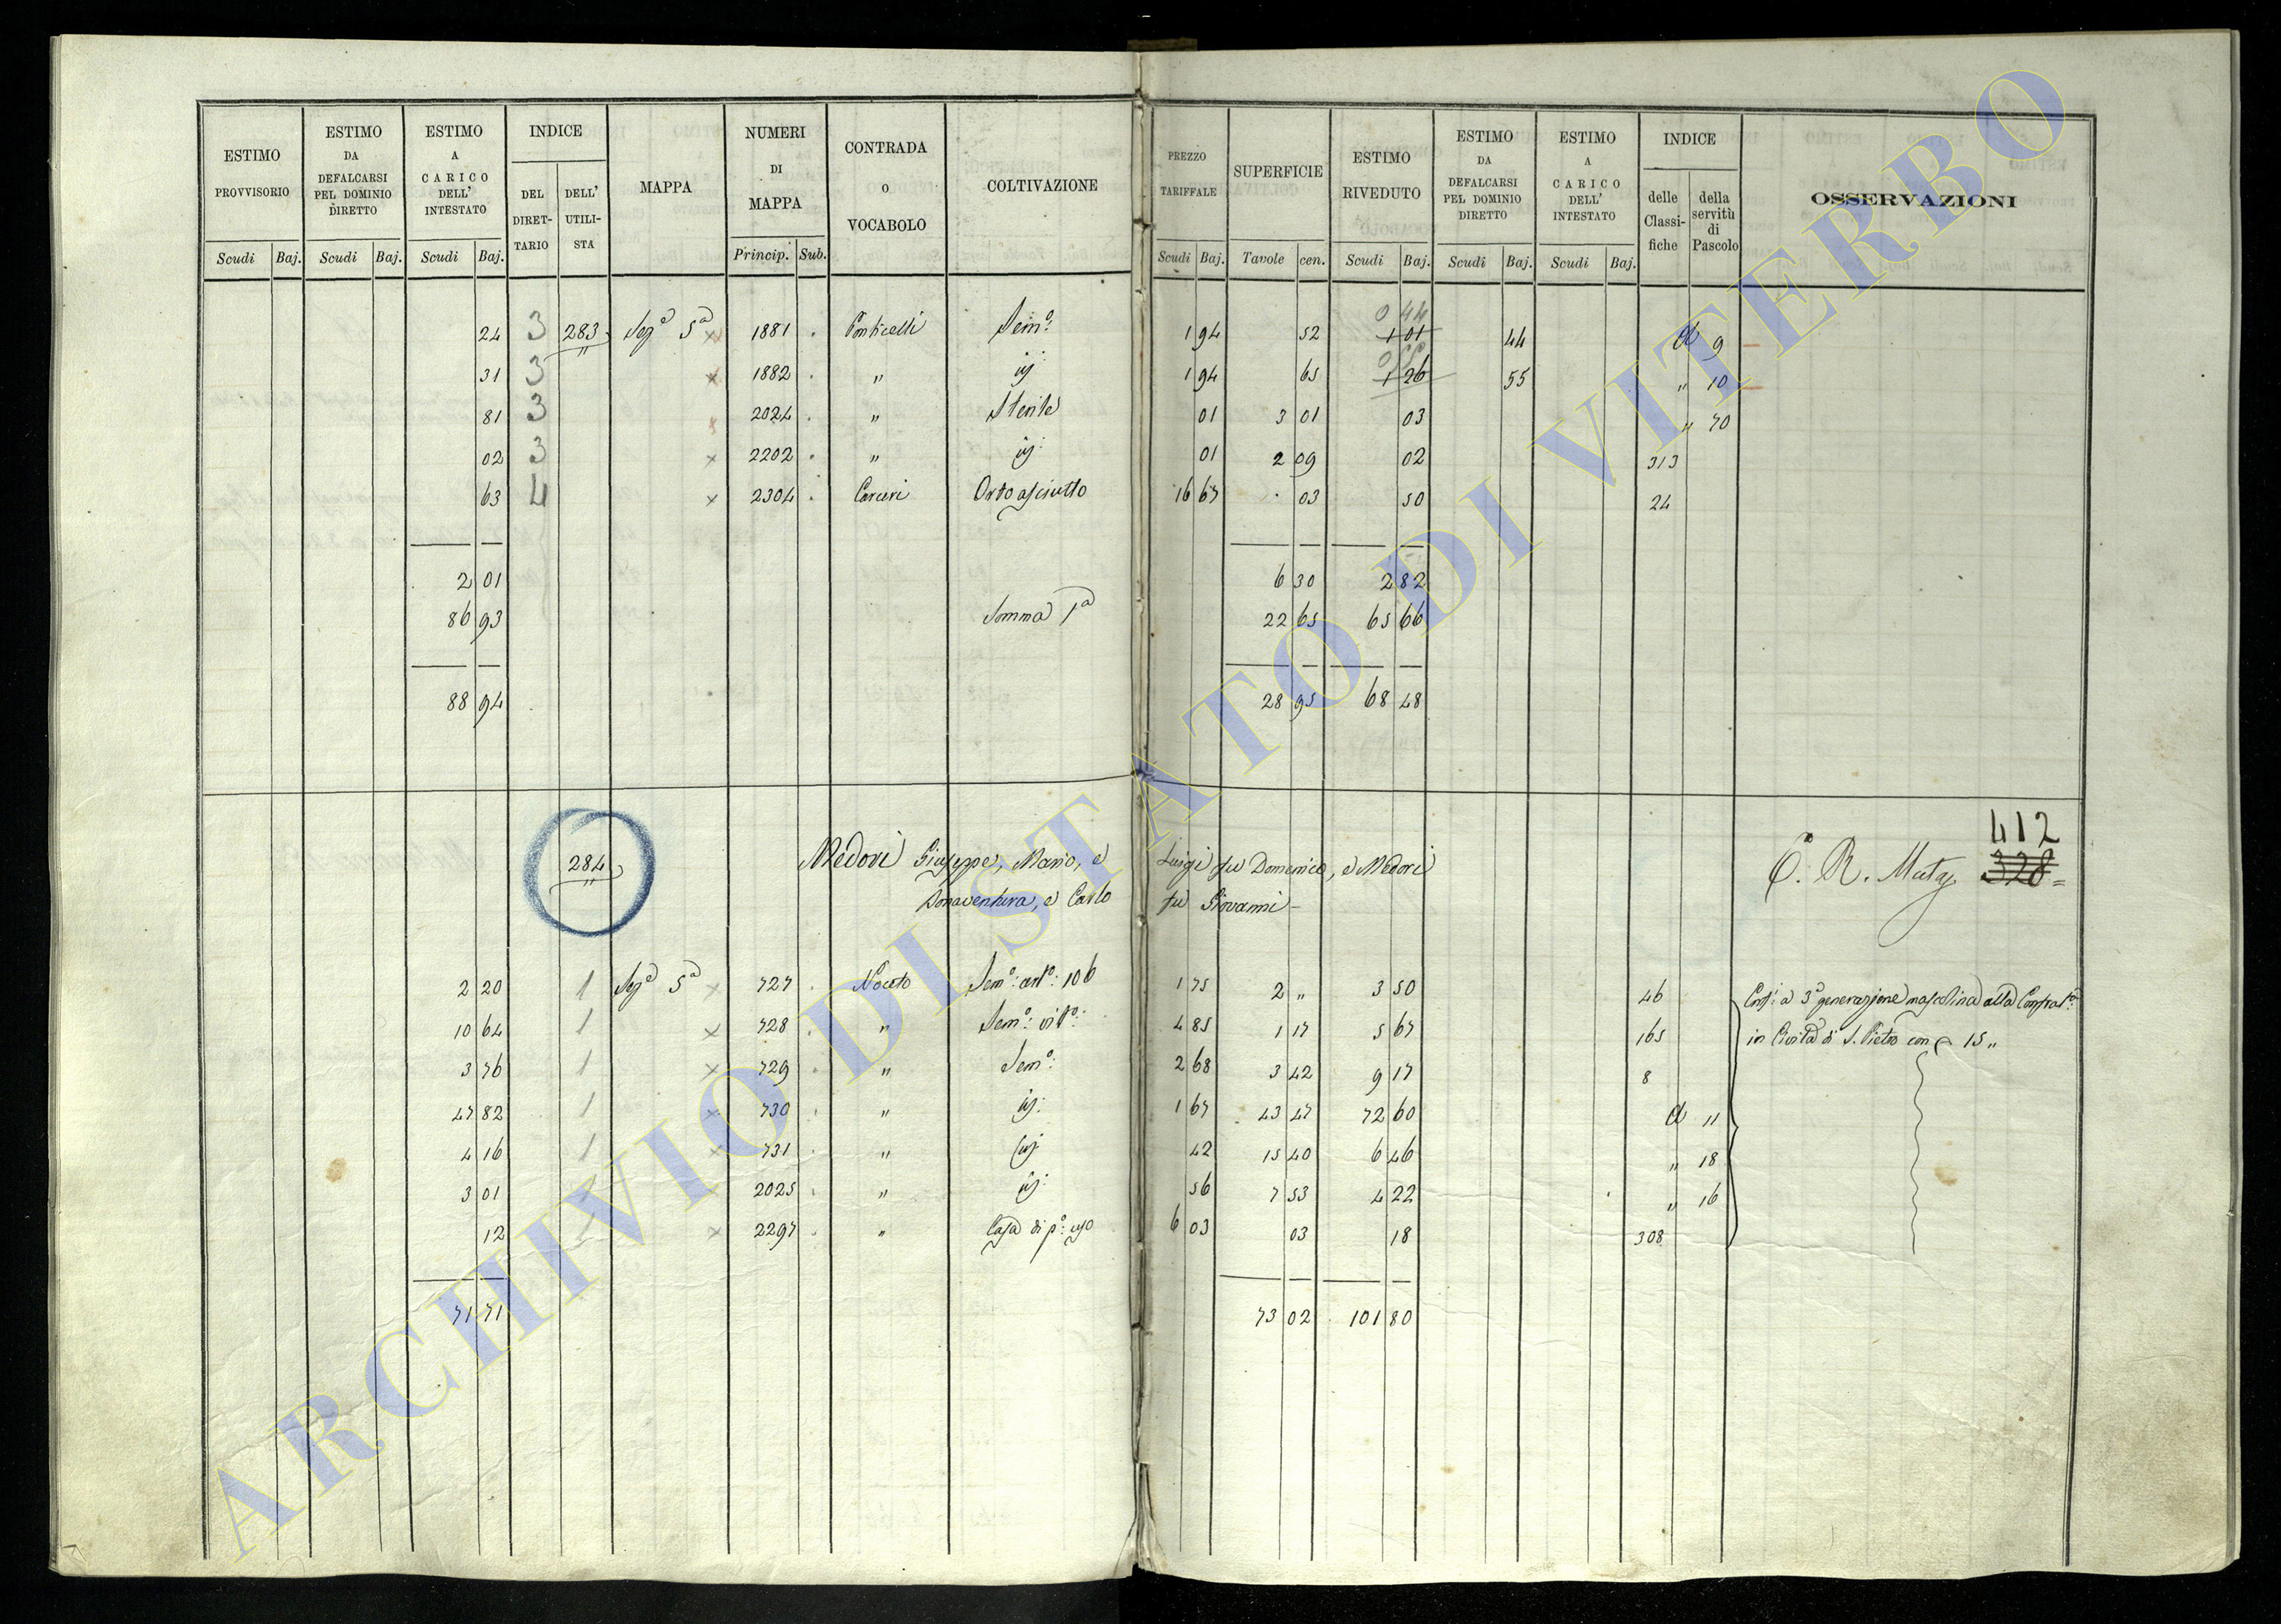 ESTIMO PROVVISORIO | ESTIMO DA DEFALCARSI PEL DOMINIO DIRETTO | ESTIMO A CARICO DELL' INTESTATO | INDICE | MAPPA | NUMERI DI MAPPA | CONTRADA O VOCABOLO | COLTIVAZIONE | PREZZO TARIFFALE | SUPERFICIE | ESTIMO RIVEDUTO | ESTIMO DA DEFALCARSI PEL DOMINIO DIRETTO | ESTIMO A CARICO DELL' INTESTATO | INDICE | OSSERVAZIONI
DEL DIRET-TARIO | DELL' UTILI-STA | delle Classi-fiche | della servitù di Pascolo
Scudi Baj. | Scudi Baj. | Scudi Baj. | Princip. Sub. | Scudi Baj. | Tavole cen. | Scudi Baj. | Scudi Baj. | Scudi Baj.
0 44
24 3 283 Sez.ª 5ª x 1881 . Ponticelli Sem.º 1 94 52 1 01 44 d 9
31 3 x 1882 . " id: 1 94 65 1 26 55 " 10
81 3 x 2024 . " Sterile 01 3 01 03 " 70
02 3 x 2202 . " id: 01 2 09 02 313
63 4 x 2304 . Carceri Orto asciutto 16 67 . 03 50 24
2 01 6 30 2 82
86 93 Somma 1ª 22 65 65 66
88 94 28 95 68 48
412
284 Medori Giuseppe, Mario, e Luigi fu Domenico, e Medori 328
Bonaventura, e Carlo fu Giovanni -
2 20 1 Sez.ª 5ª x 727 . Sem.º: art.º: 106 1 75 2 " 3 50 46 a 3ª generazione mascolina alla Confrat.ª
10 64 1 x 728 . " Sem.º: vit.º: 4 85 1 17 5 67 165 in Civita di S. Pietro con 15 "
3 76 1 x 729 . " Sem.º: 2 68 3 42 9 17 8
47 82 1 x 730 . " id: 1 67 43 47 72 60 d 11
4 16 1 x 731 . " id: 42 15 40 6 46 " 18
3 01 1 x 2025 . " id: 56 7 53 4 22 " 16
12 1 x 2297 . " Casa di p.º: uso 6 03 03 18 308
71 71 73 02 101 80
ARCHIVIO DI STATO DI VITERBO